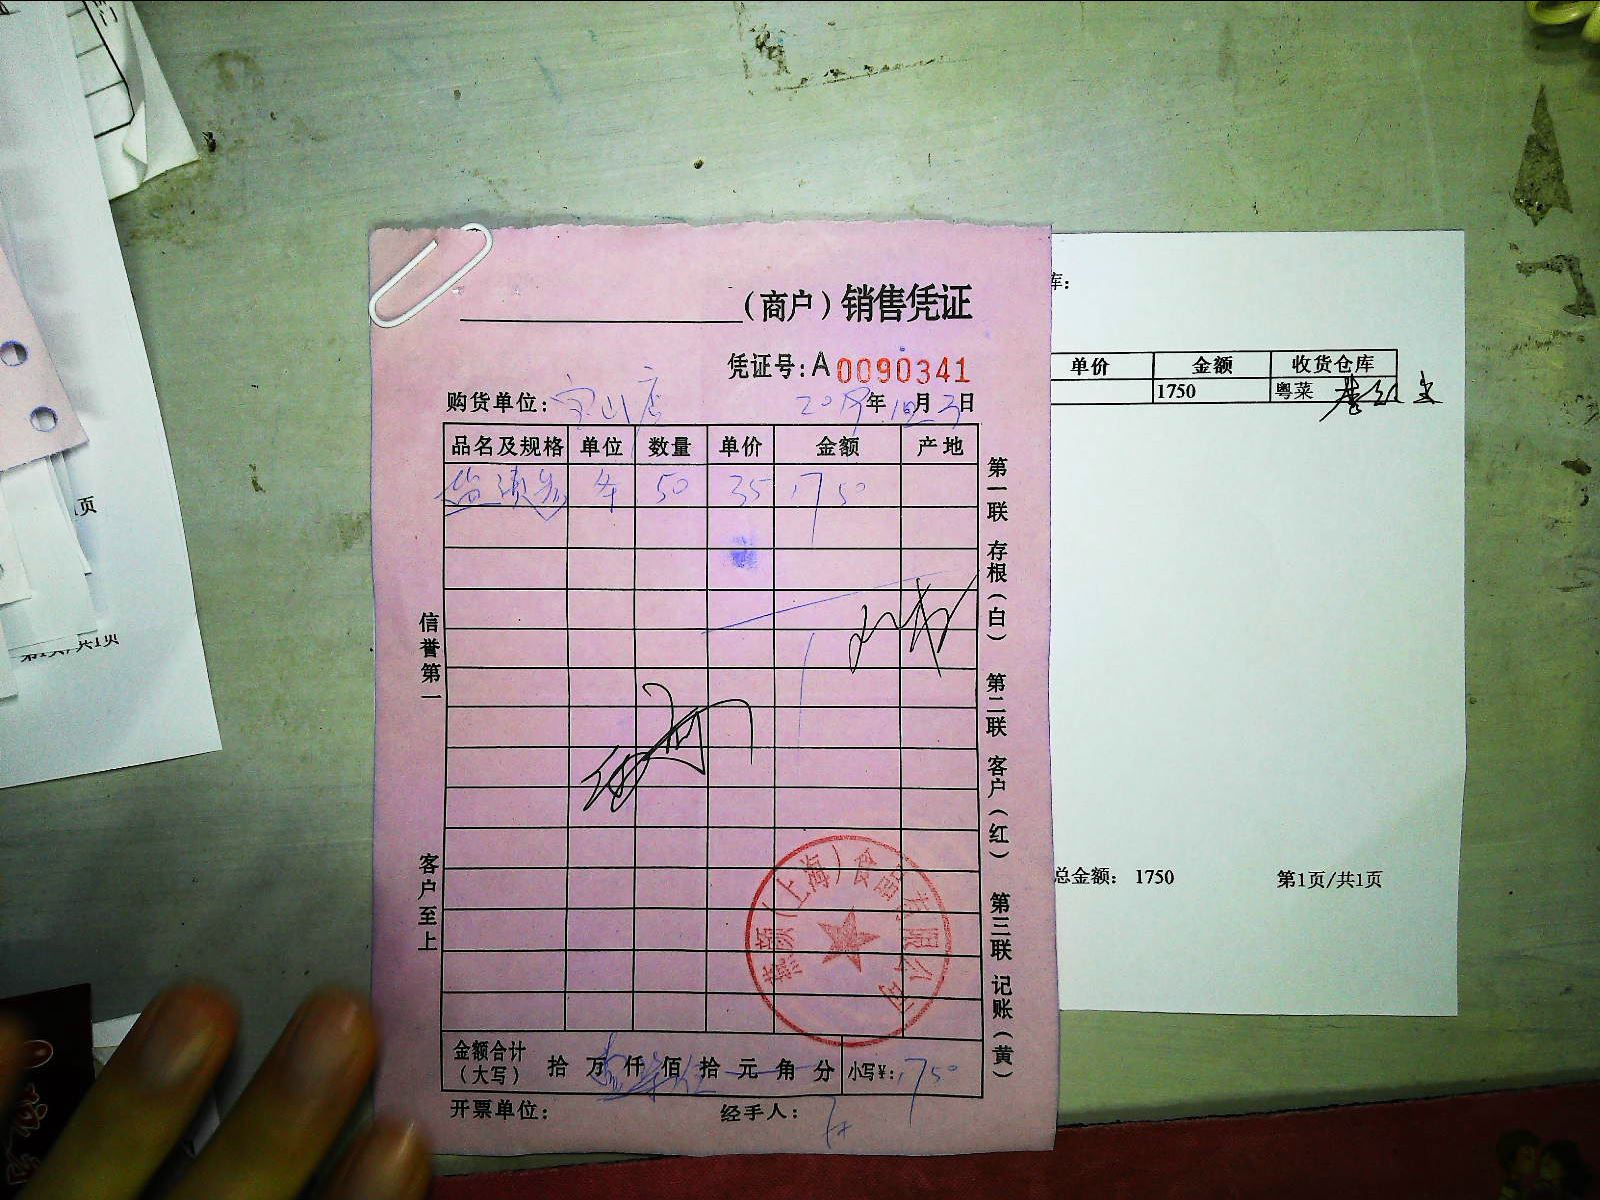 (商户)销售凭证
凭证号:A 0090341
购货单位: 宝山店 年 月 日
品名及规格 单位 数量 单价 金额 产地
50 35 1750
信誉第一
客户至上
第一联 存根(白) 第二联 客户(红) 第三联 记账(黄)
(上海)食品有限公司
金额合计(大写) 拾 万 仟 佰 拾 元 角 分 小写¥: 1750
开票单位: 经手人:
库:
单价 金额 收货仓库
1750 粤菜
总金额: 1750 第1页/共1页
页
第1页/共1页